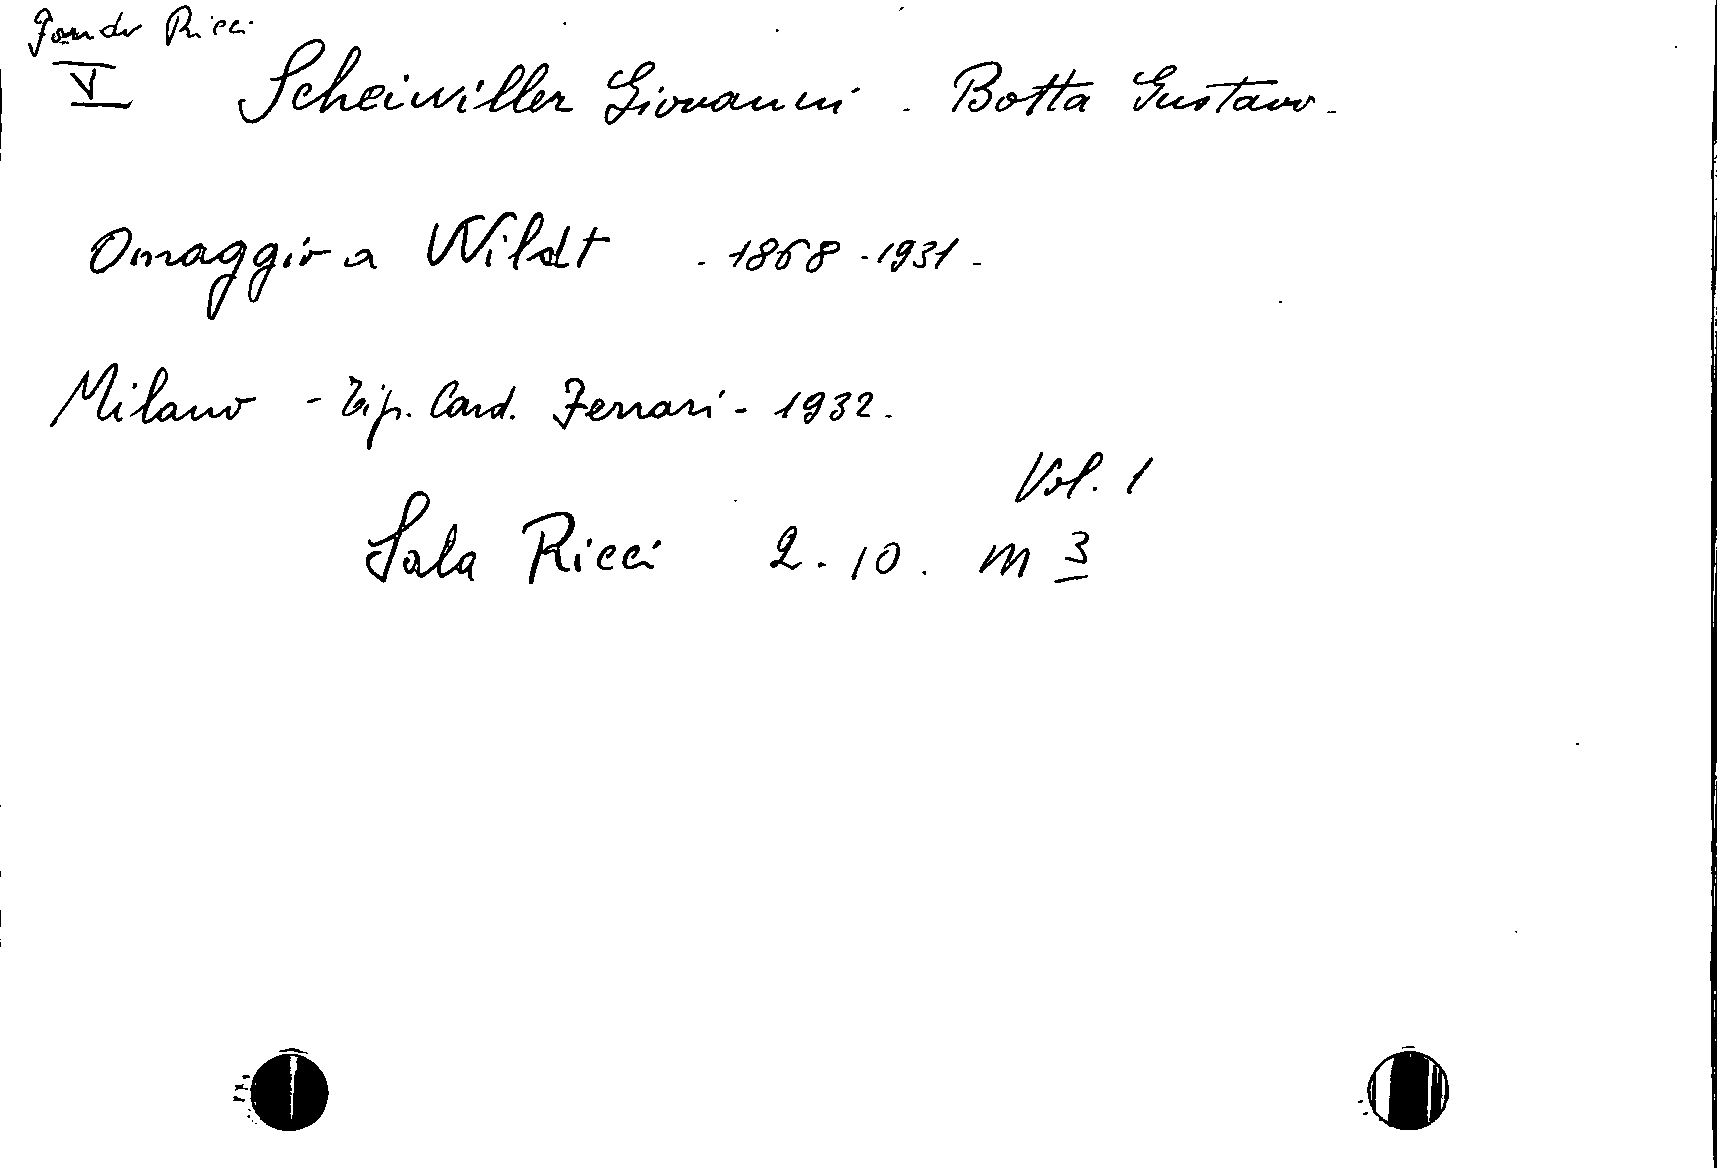 Fondo Ricci
V Scheiwiller Giovanni . Botta Gustavo .
Omaggio a Wildt . 1868 - 1931 -
Milano - Tip. Card. Ferrari - 1932 .
Vol. 1
Sala Ricci 2. 10. m 3